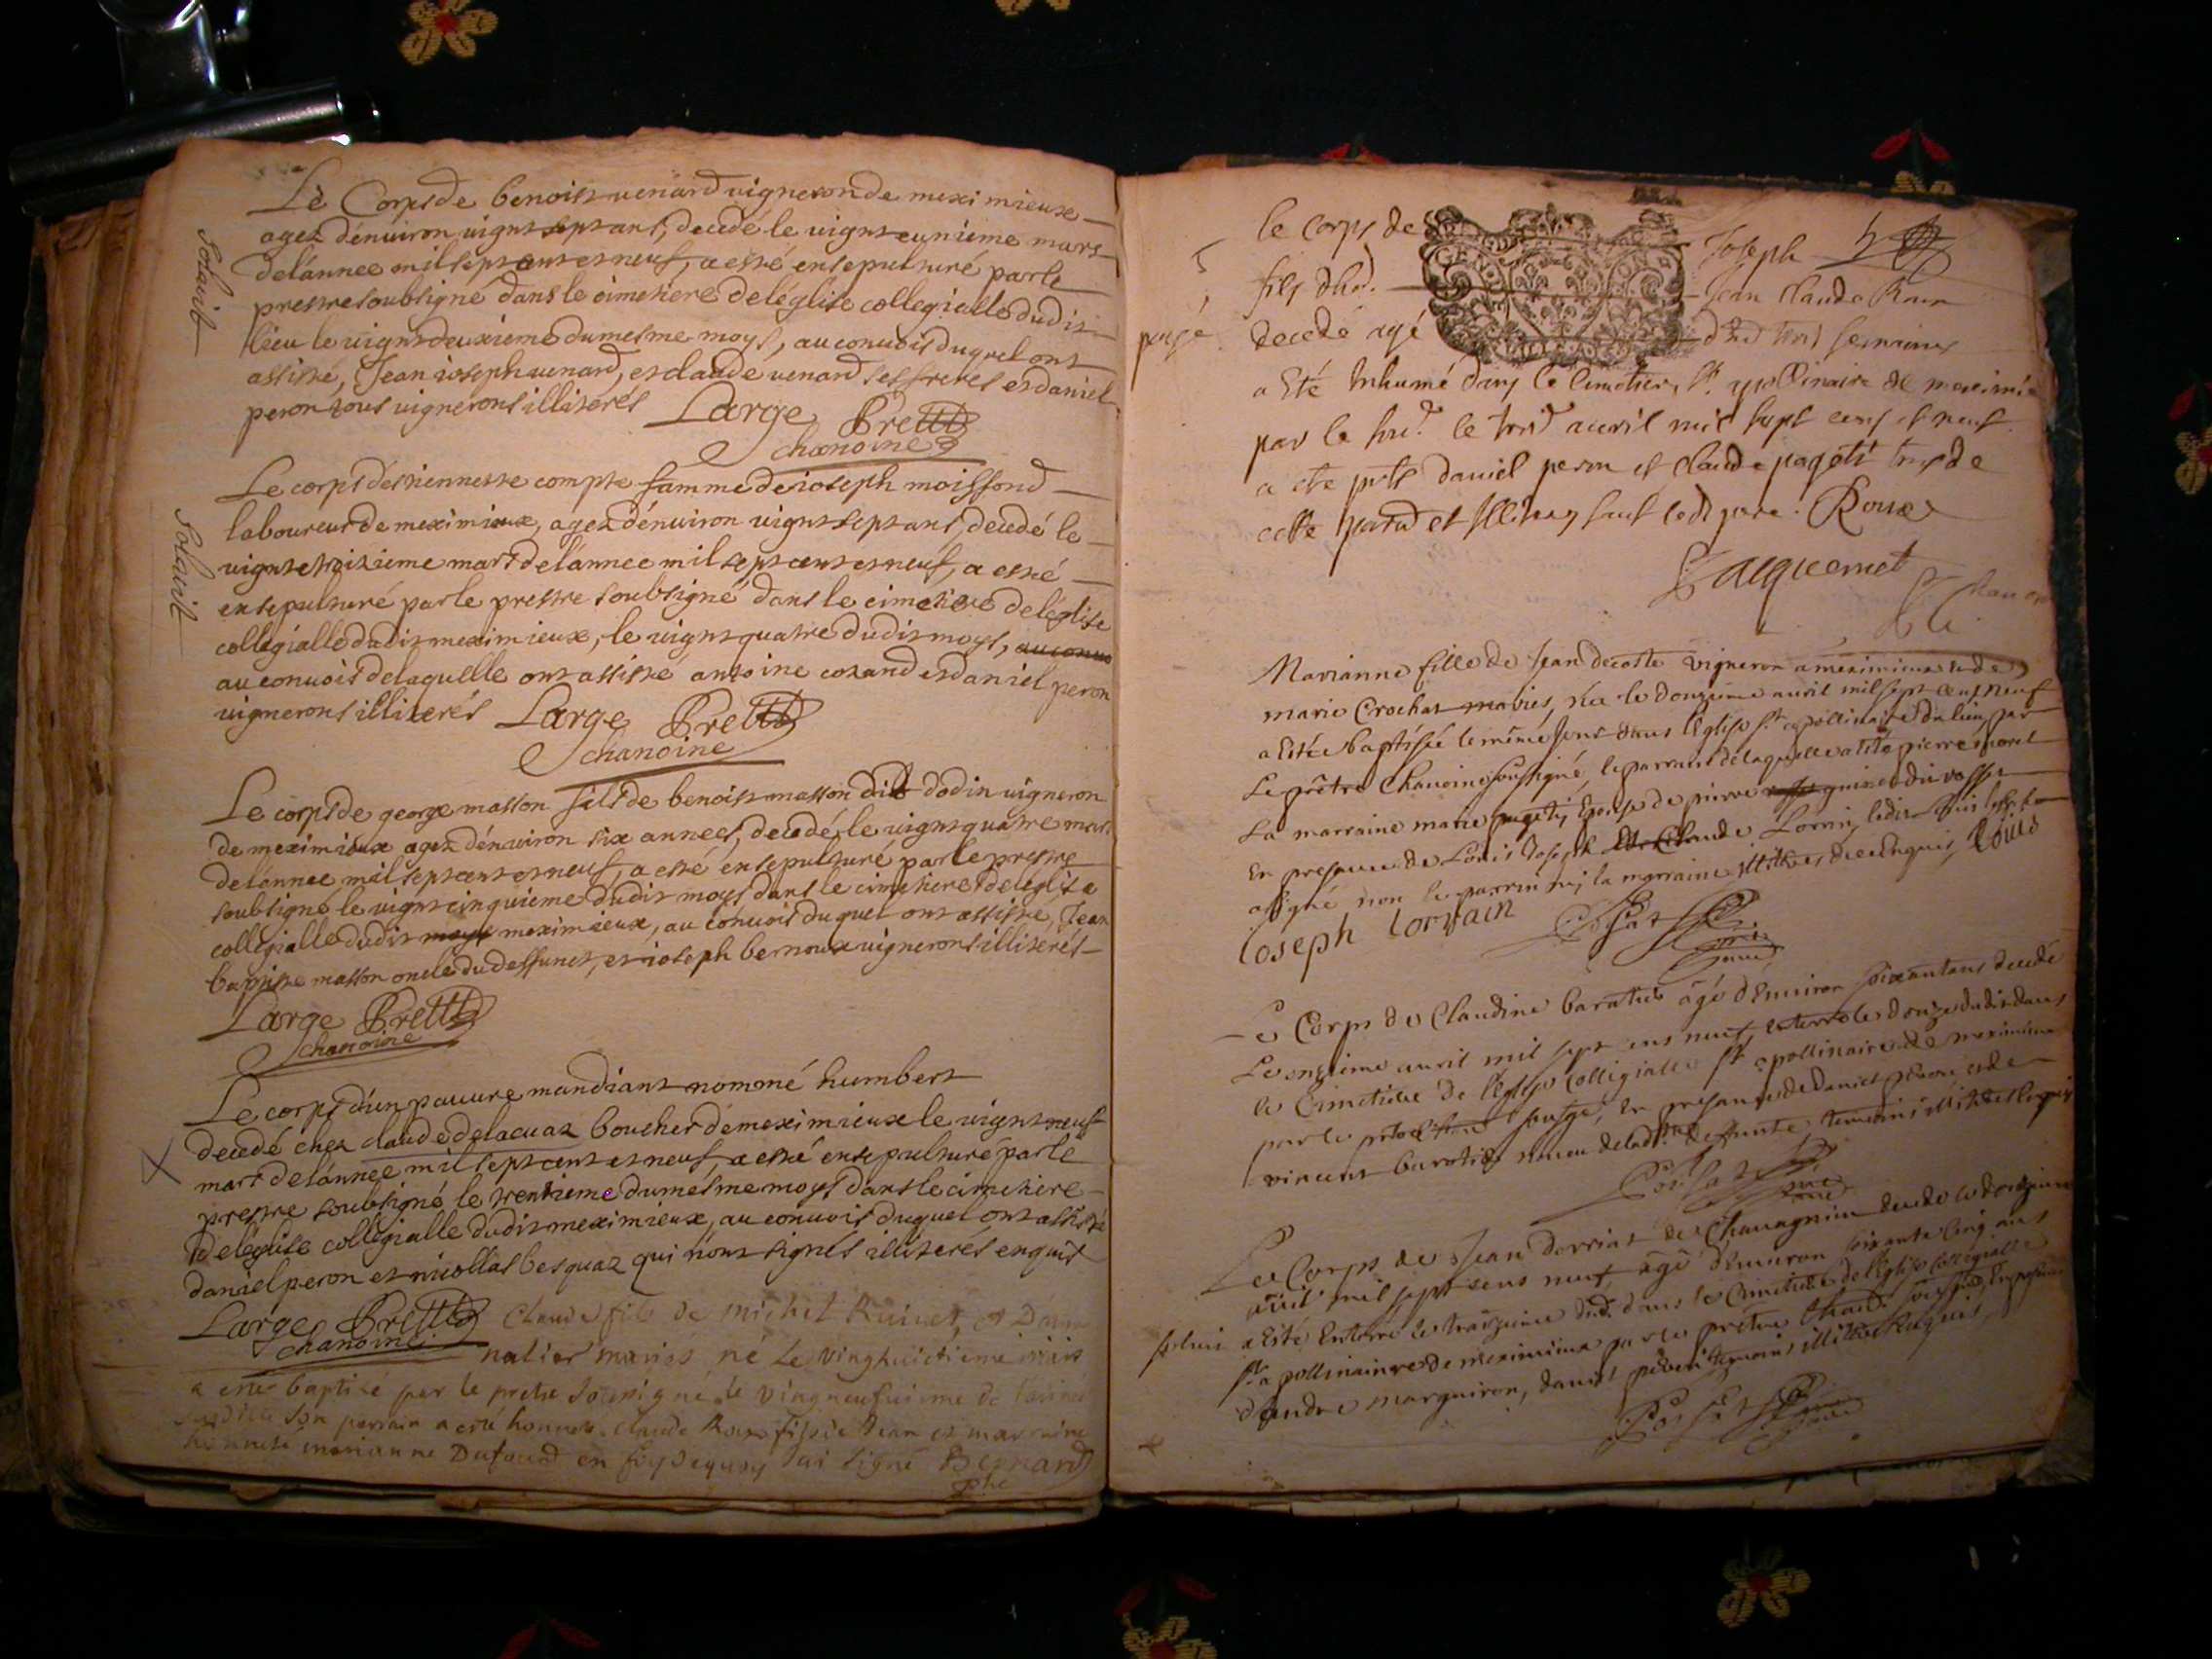 Le Corps de benoist venard vigneron de meximieux
agez dénuiron vignt sept ans, decedé le vignt eunieme mars
delánnee mil sept cent et neuf, a esté ensepulturé par le
prestre soubsigné dans le cimetiere deléglise collegialle dudit
lieu le vignt deuxieme du mesme moys, au conuois duquel ont
assisté, Jean ioseph venard, et claude venard ses freres et daniel
peron tous vignerons illiterés Large Prettre
chanoine
Le corps détiennette compte famme de ioseph moissond
laboureur de meximieux, agez dénuiron vignt sept ans, decedé le
vignt etroisieme mart delánnee mil sept cent et neuf, a esté
ensepulturé par le prestre soubsigné dans le cimetiere deléglise
collegialle dudit meximieux, le vignt quatre dudit moys, au conuo
au conuois delaquelle ont assisté antoine cozand et daniel peron
vignerons illiterés Large Prettre
chanoine
Le corps de george masson fils de benoist masson dit dodin vigneron
de meximieux agez dénuiron six annees, decedé le vignt quatre mars
delánnee mil sept cent et neuf, a esté ensepulturé par le prestre
soubsigné le vignt cinquieme dudit moys dans le cimetiere deleglise
collegialle dudit moys meximieux, au conuois duquel ont assisté, Jean
baptiste masson oncle du deffunct, et ioseph bernoux vignerons illiterés
Large Prettre
chanoine
Le corps d'un pauure mandiant nommé humbert
decedé chez claude delacuaz boucher de meximieux le vignt neuf
mart delánnee mil sept cent et neuf, a esté ensepulturé par le
prestre soubsigné le trentieme du mesme moys dans le cimetiere
deleglise collegialle dudit meximieux, au conuois duquel ont assisté
daniel peron et nicollas besquaz qui nont signés illiterés enquis
Large Prettre
chanoine
Claude fils de michel Ruivet, et
mariés né Le vinghuictieme mars
a este baptisé par le pretre sousigné le vingneufuieme de
son parrain a esté honneste claude Roux fils de Jean et marraine
marianne Dufour en foy dequoy Jai signé Bernard
le corps de Joseph
fils dhd. Jean Claude Roux
decedé agé trois semaines
a Eté Inhumé dans le cimetiere St. apollinaire de meximie
par le sous. le trois auril mil sept cens et neuf
a ete pnts daniel peron et claude pagoti tous de
cette parroisse et Illiterez sauf led pere. Roux
Jacquemet
Marianne fille de Jean decoste vigneron a meximieux et de
marie Crochat mariés, née le douzieme auril mil sept cens neuf
a Esté baptisée le même jour dans l'Eglise St. apollinaire du lieu par
Le prêtre Chanoine soussigné, le parrain delaquelle a esté pierre morel
La marraine marie pugeti, Epouse de pierre
En presance de Louis Joseph Claude Lorrin,
asigné non le parrin ni la marraine illiteres de ce enquis, Louis
Ioseph Lorrain
Le Corps de Claudine baratier agé d'Enuiron soixant ans decedé
Le onzieme auril mil sept cens neuf, Enterré le douze dudit dans
le Cimetiere de l'Eglise Collegialle St. apollinaire de meximieux
par le prêtre soussigné, En presance de Daniel peron et de
vincent baratier neueu de lad. deffunte temoins illiteres
Le Corps de Jean derriat de Chauagnieu decedé le douzieme
auril mil sept cens neuf, agé d'Enuiron soixante cinq ans
a Esté Enterré le traizieme dud. dans le Cimetiere de l'Eglise Collegialle
St. apollinaire de meximieux par le prêtre Chan. soussigné, En presance
d'andre marguiron, daniel peron temoins illiteres Enquis